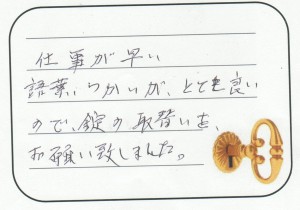 仕事が早い
語葉づかいが、とても良い
ので、錠の取替いを、
お願い致しました。